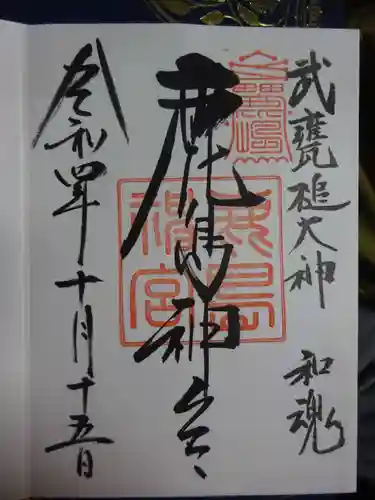 武甕槌大神 和魂
鹿島神宮
鹿島神宮
令和四年十月十五日